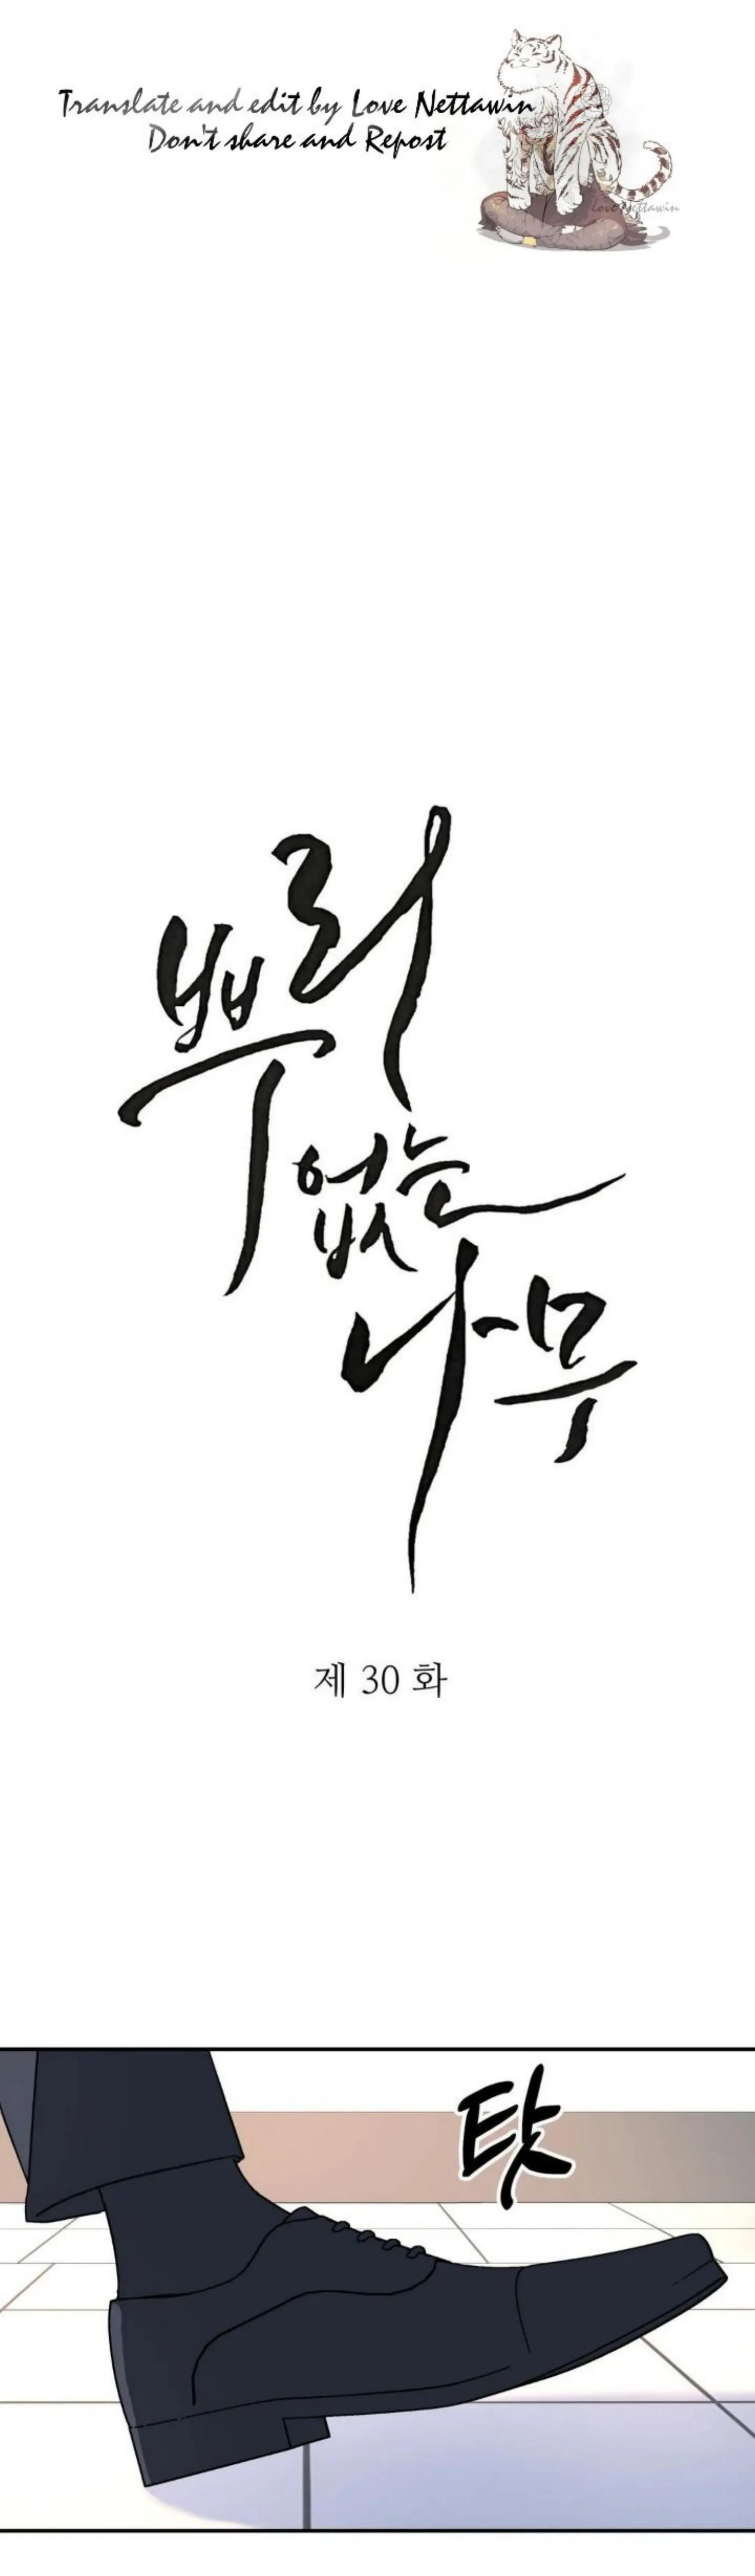 Translate and edit by Love Nettawin
Don't share and Repost
Love Nettawin
뿌리
없는
나무
제 30 화
탓